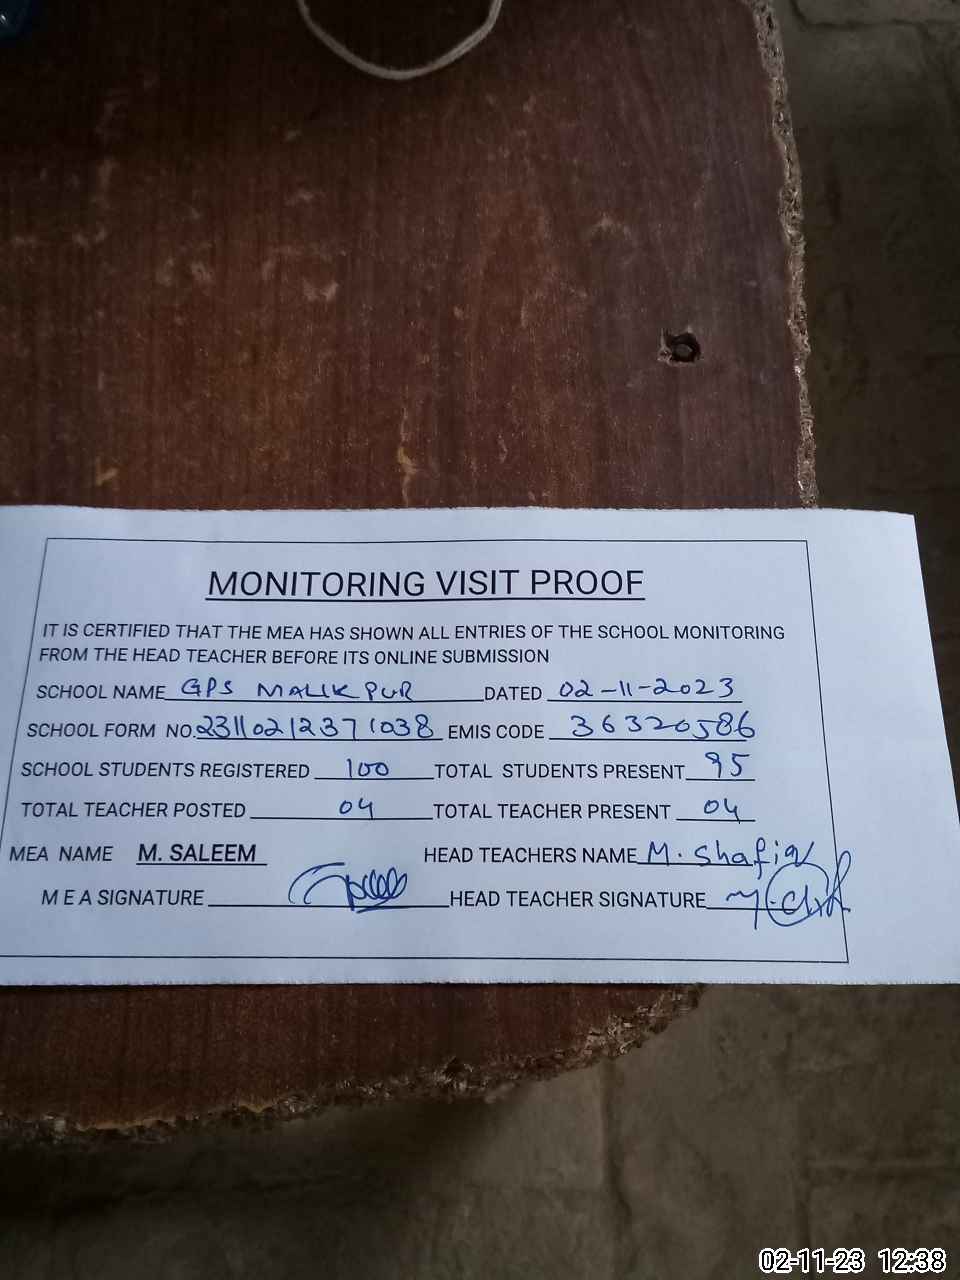 MONITORING VISIT PROOF
IT IS CERTIFIED THAT THE MEA HAS SHOWN ALL ENTRIES OF THE SCHOOL MONITORING
FROM THE HEAD TEACHER BEFORE ITS ONLINE SUBMISSION
SCHOOL NAME GPS MALIKPUR DATED 02-11-2023
SCHOOL FORM NO. 23110212371038 EMIS CODE 36320586
SCHOOL STUDENTS REGISTERED 100 TOTAL STUDENTS PRESENT 95
TOTAL TEACHER POSTED 04 TOTAL TEACHER PRESENT 04
MEA NAME M. SALEEM HEAD TEACHERS NAME M. Shafiq
M E A SIGNATURE HEAD TEACHER SIGNATURE
02-11-23 12:38